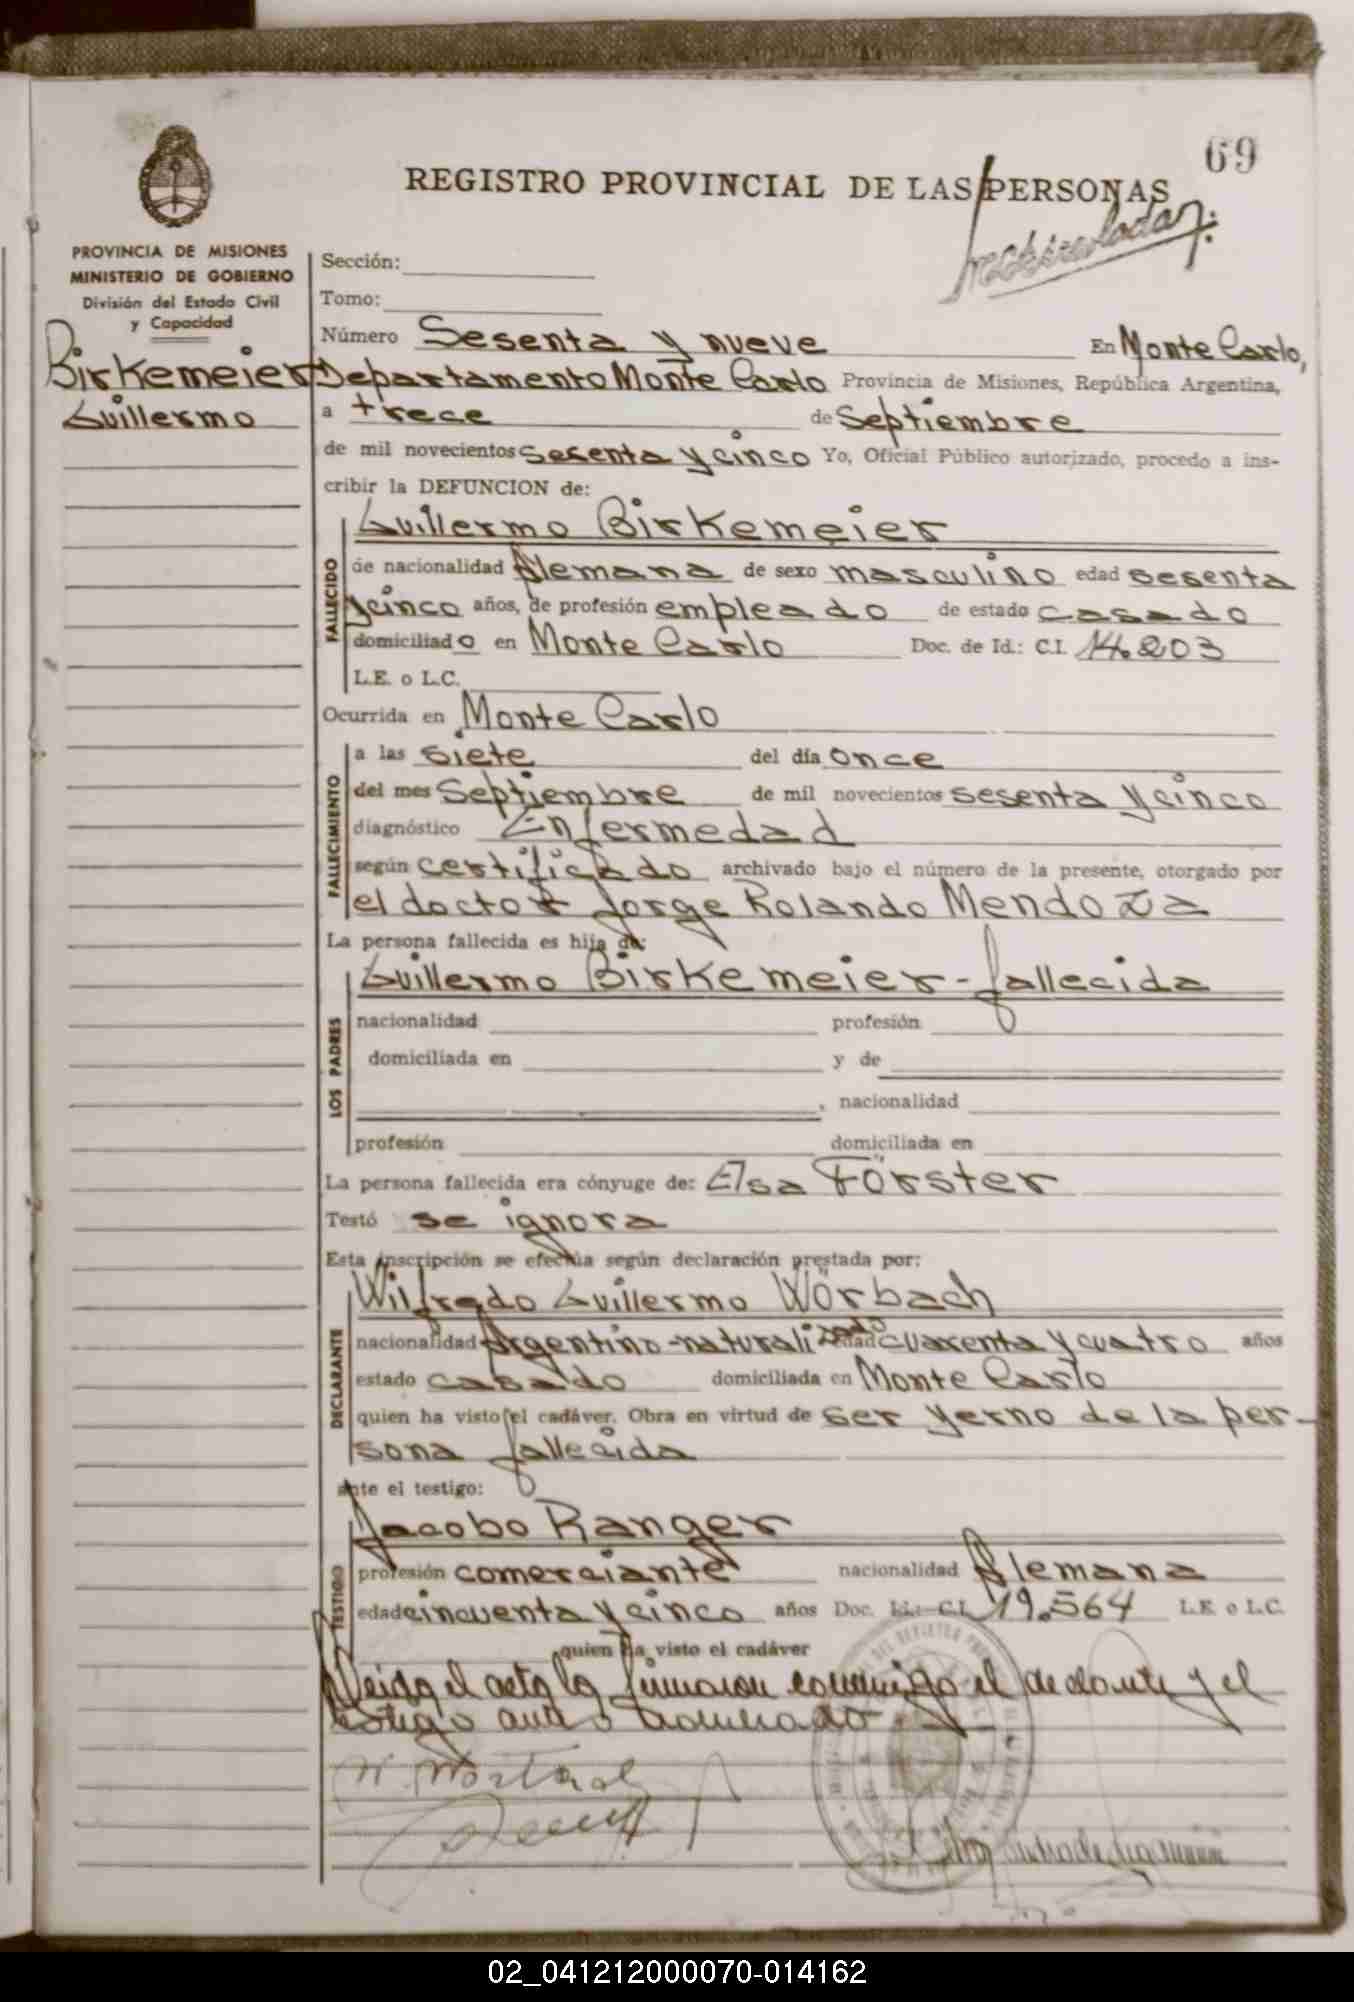 69
REGISTRO PROVINCIAL DE LAS PERSONAS
PROVINCIA DE MISIONES
MINISTERIO DE GOBIERNO
División del Estado Civil
y Capacidad
Birkemeier
Guillermo
Sección:
Tomo:
Número Sesenta y nueve En Monte Carlo,
Departamento Monte Carlo Provincia de Misiones, República Argentina,
a trece de Septiembre
de mil novecientos sesenta y cinco Yo, Oficial Público autorizado, procedo a ins-
cribir la DEFUNCION de:
FALLECIDO
Guillermo Birkemeier
de nacionalidad Alemana de sexo masculino edad sesenta
y cinco años, de profesión empleado de estado casado
domiciliado en Monte Carlo Doc. de Id.: C.I. 14.203
L.E. o L.C.
Ocurrida en Monte Carlo
FALLECIMIENTO
a las siete del día once
del mes Septiembre de mil novecientos sesenta y cinco
diagnóstico Enfermedad
según certificado archivado bajo el número de la presente, otorgado por
el doctor Jorge Rolando Mendoza
La persona fallecida es hija de:
LOS PADRES
Guillermo Birkemeier - fallecida
nacionalidad profesión
domiciliada en y de
, nacionalidad
profesión domiciliada en
La persona fallecida era cónyuge de: Elsa Förster
Testó se ignora
Esta inscripción se efectúa según declaración prestada por:
DECLARANTE
Wilfredo Guillermo Wörbach
nacionalidad Argentino-naturalizado edad cuarenta y cuatro años
estado casado domiciliada en Monte Carlo
quien ha visto el cadáver. Obra en virtud de ser yerno de la per-
sona fallecida
ante el testigo:
TESTIGO
Jacobo Ranger
profesión comerciante nacionalidad Alemana
edad cincuenta y cinco años Doc. Id.: C.I. 19.564 L.E. o L.C.
quien ha visto el cadáver
Leida el acta la firmaron conmigo el declarante y el
testigo
02_041212000070-014162